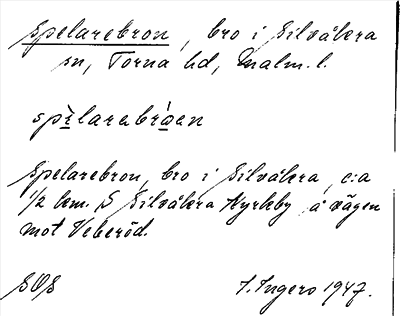 Spelarebron, bro i Silvåkra
sn, Torna hd, Malm. l.
spi̱larabro̱en
Spelarebron, bro i Silvåkra, c:a
1/2 km. S Silvåkra Kyrkby å vägen
mot Veberöd.
SOS I. Ingers 1947.